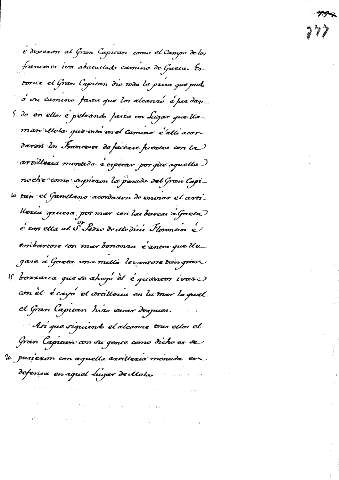 777
é dixeron al Gran Capitan como el Campo de los
franceses iva ahucullado camino de Gaeta. En
tonces el Gran Capitan dio toda la priesa que pudo
á su camino fasta que los alcanzó é fue dan
5 do en ellos é peleando fasta un Lugar que lla
man Mola que está en el camino é allí acor
daron los Franceses de facerse fuertes con la
artilleria menuda é esperar por que aquella
noche como supieron la pasada del Gran Capi
10 tan el Garellano acordaron de enviar el arti
lleria gruesa por mar con las barcas á Gaeta
é con ella al Sr. Pedro de Medicis Florentin é
embarcose con mar bonanza é antes que lle
gase á Gaeta una milla levantose tan gran
15 borrasca que se ahogó él é quantos ivan
con él é cayó el artilleria en la mar la qual
el Gran Capitan hizo sacar despues.
Asi que siguiendo el alcance tras ellos el
Gran Capitan con su gente como dicho es se
20 pusieron con aquella artilleria menuda en
defensa en aquel Lugar de Mola